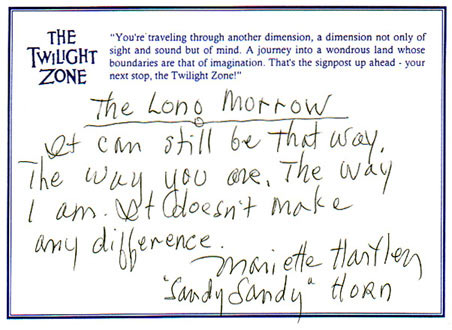 THE
TWILIGHT
ZONE
"You're traveling through another dimension, a dimension not only of
sight and sound but of mind. A journey into a wondrous land whose
boundaries are that of imagination. That's the signpost up ahead - your
next stop, the Twilight Zone!"
The Long Morrow
It can still be that way.
The way you are. The way
I am. It doesn't make
any difference.
Mariette Hartley
"Sandy Sandy" HORN